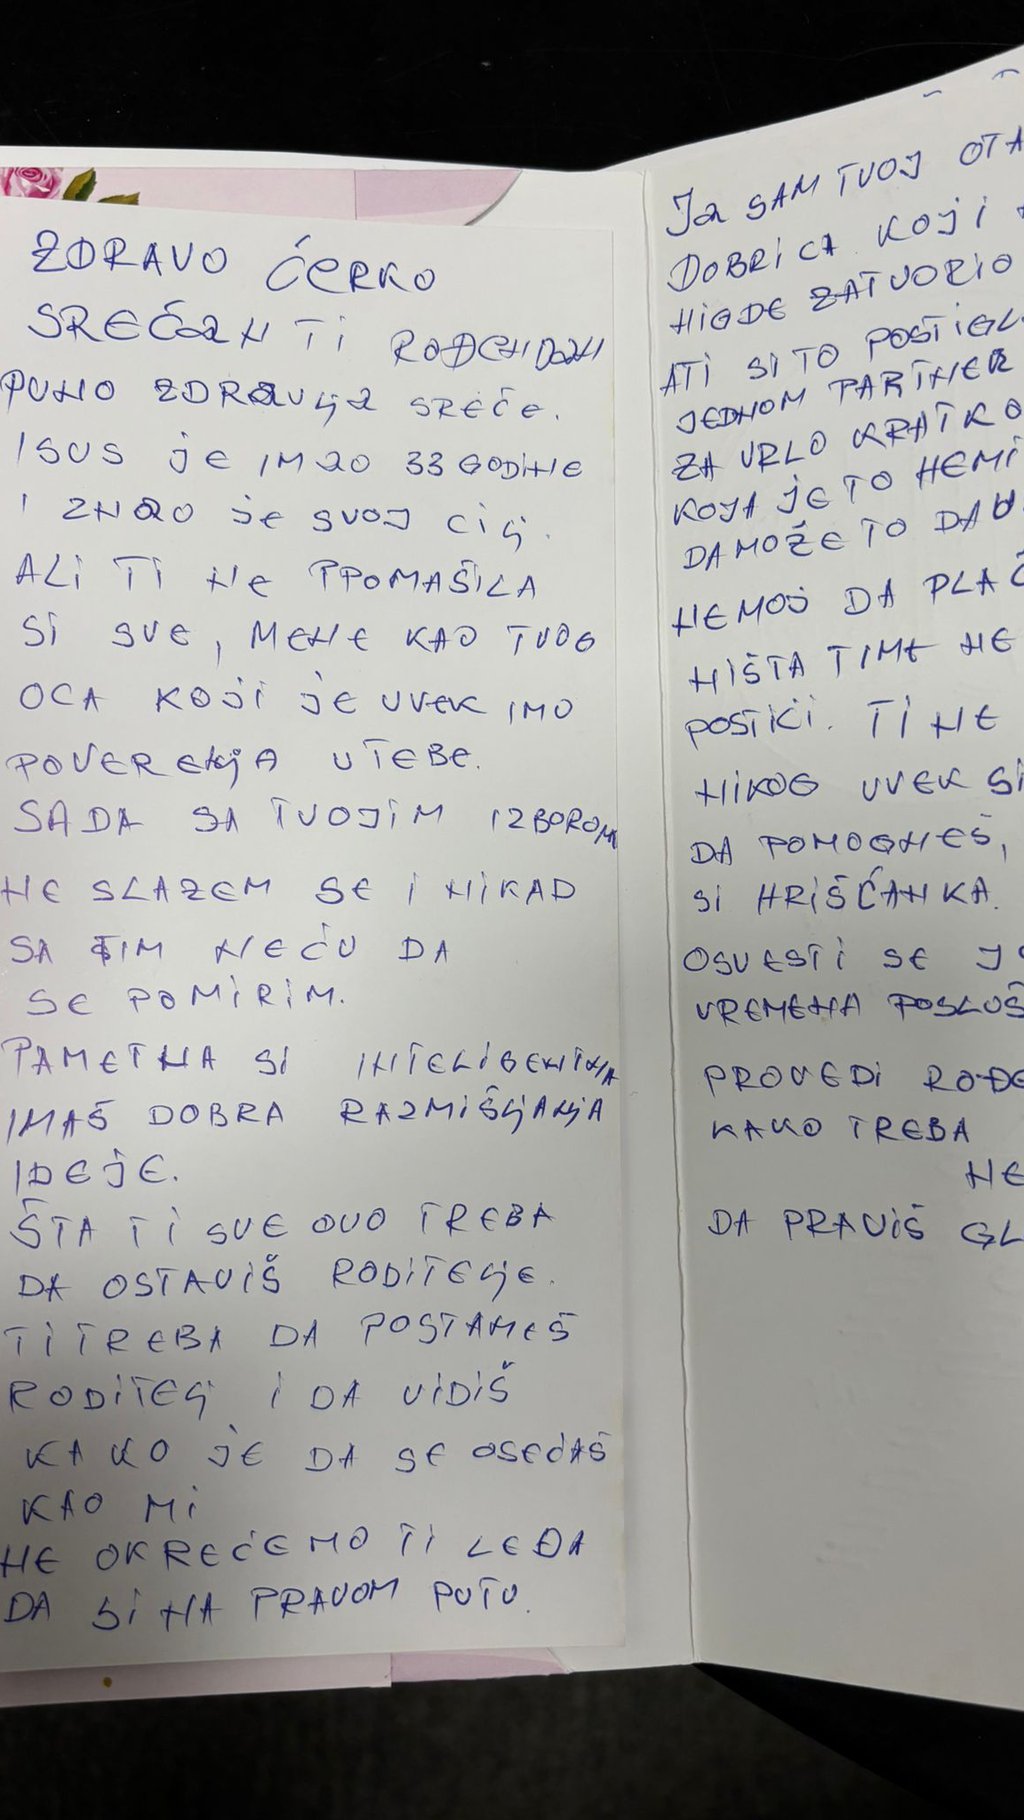 ZDRAVO ĆERKO
SREĆAN TI ROĐENDAN
PUNO ZDRAVLJA SREĆE.
ISUS JE IMAO 33 GODINE
I ZNAO JE SVOJ CILJ.
ALI TI NE PPOMAŠILA
SI SVE, MENE KAO TVOG
OCA KOJI JE UVEK IMO
POVERENJA U TEBE.
SADA SA TVOJIM IZBOROM
NE SLAZEM SE I NIKAD
SA TIM NEĆU DA
SE POMIRIM.
PAMETNA SI INTELIGENTNA
IMAŠ DOBRA RAZMIŠLJANJA
IDEJE.
ŠTA TI SVE OVO TREBA
DA OSTAVIŠ RODITELJE.
TI TREBA DA POSTANEŠ
RODITELJ I DA VIDIŠ
KAKO JE DA SE OSEĆAŠ
KAO MI
NE OKREĆEMO TI LEĐA
DA SI NA PRAVOM PUTU.
JA SAM TVOJ OTA
DOBRICA KOJI
NIGDE ZATVORIO
A TI SI TO POSTIGL
JEDNOM PARTNER
ZA VRLO KRATKO
KOJA JE TO HEMI
DA MOŽE TO DA
NEMOJ DA PLAČ
NIŠTA TIME NE
POSTIĆI. TI NE
NIKOG UVEK SI
DA POMOGNEŠ,
SI HRIŠĆANKA.
OSVESTI SE
VREMENA POSLUŠ
PROVEDI ROĐE
KAKO TREBA
NE
DA PRAVIŠ GL